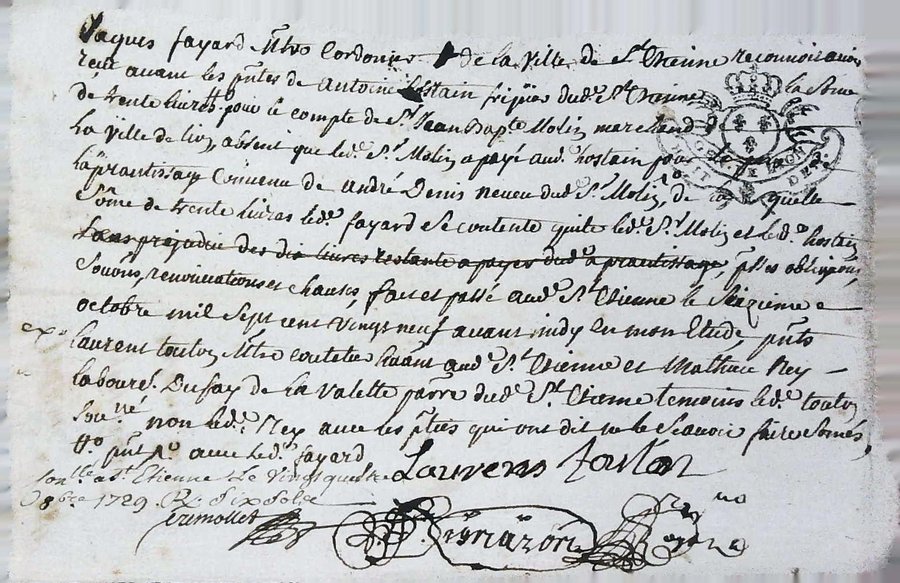 Jaques fayard Mtre Cordonier de la Ville de St. Etienne reconnoit avoir
reçu avant les pntes de antoine hostain fripier dud. St. Etienne la Sôme
de trente livres pour le compte de Sr. Jean Bapte Molin marchand
La Ville de lion, absent que led. Sr. Molin a payé aud. hostain pour
laprantissage Convenu de andré Denis neveu dud. Sr. Molin, de laquelle
Sôme de trente livres led. fayard Se contente quite led. Sr. Molin et led. hostain
Sans prejudice des dix livres restante a payer dud. aprantissage, obligaôns
Soumôns, renonciations et clauses, fait et passé aud. St. Etienne le Seizieme
octobre mil Sept cent vingt neuf avant midy En mon Etude, pnts
Laurent toulon Mtre coutelier hant aud. St. Etienne et Mathieu Rey
laboureur Du fay de la Valette parre dud. St. Etienne temoins led. toulon
Sou.né non led. Rey avec les pties qui ont dit ne le Scavoir faire Sômés
pnt avec led. fayard
Laurens toulon
a St. Etienne Le Vingt quatre
8bre 1729. R. Six Sols